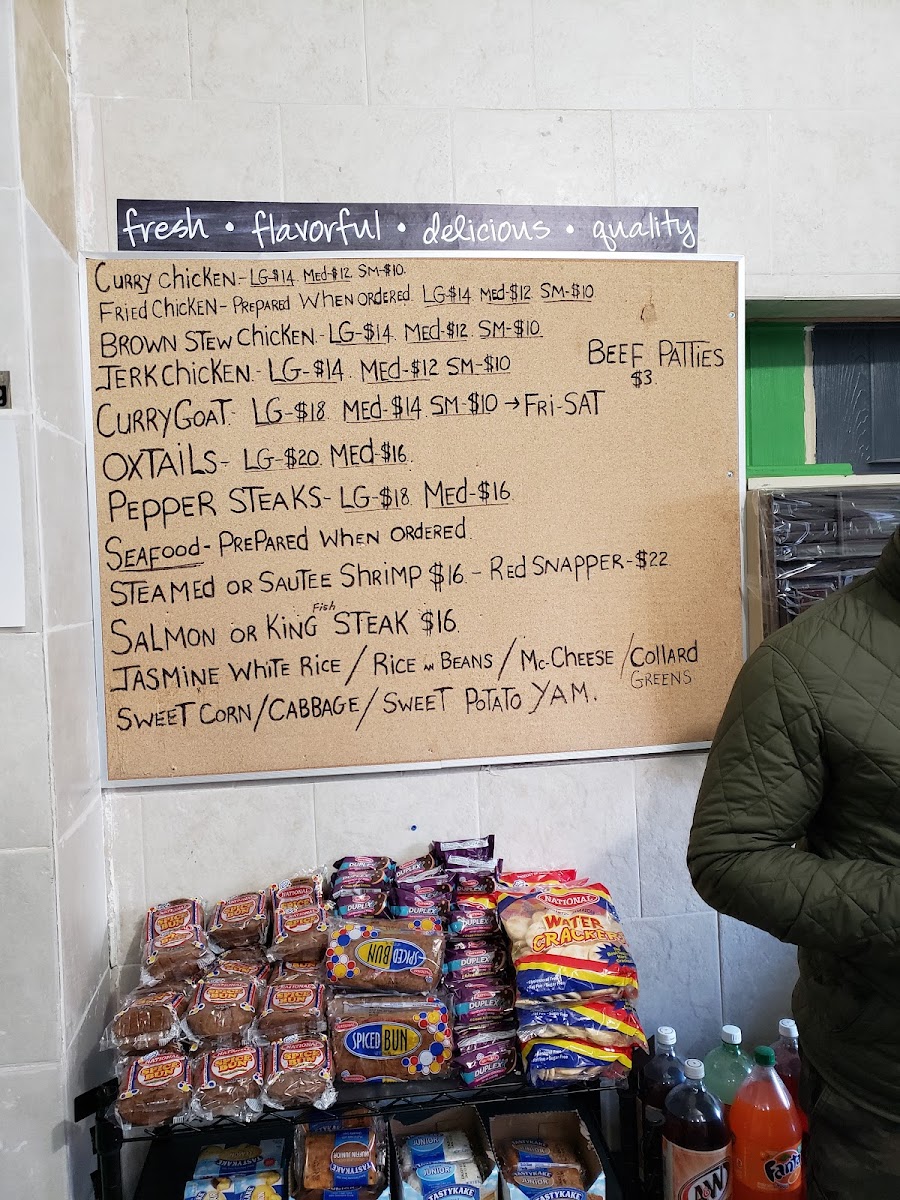 fresh • flavorful • delicious • quality
CURRY CHICKEN - LG-$14 MED-$12 SM-$10.
FRIED CHICKEN - PREPARED WHEN ORDERED LG-$14 MED-$12 SM-$10
BROWN STEW CHICKEN - LG-$14 MED-$12 SM-$10
JERK CHICKEN - LG-$14 MED-$12 SM-$10
BEEF PATTIES
$3
CURRY GOAT - LG-$18 MED-$14 SM-$10 → FRI-SAT
OXTAILS - LG-$20 MED-$16
PEPPER STEAKS - LG-$18 MED-$16
SEAFOOD - PREPARED WHEN ORDERED
STEAMED OR SAUTEE SHRIMP $16 - RED SNAPPER - $22
SALMON OR KING Fish STEAK $16
JASMINE WHITE RICE / RICE AN BEANS / Mc-CHEESE / COLLARD GREENS
SWEET CORN / CABBAGE / SWEET POTATO YAM.
NATIONAL
SPICE BUN
SPICED BUN
SPICED BUN
DUPLEX
NATIONAL
WATER CRACKERS
TASTYKAKE
JUNIOR
TASTYKAKE
A&W
Fanta